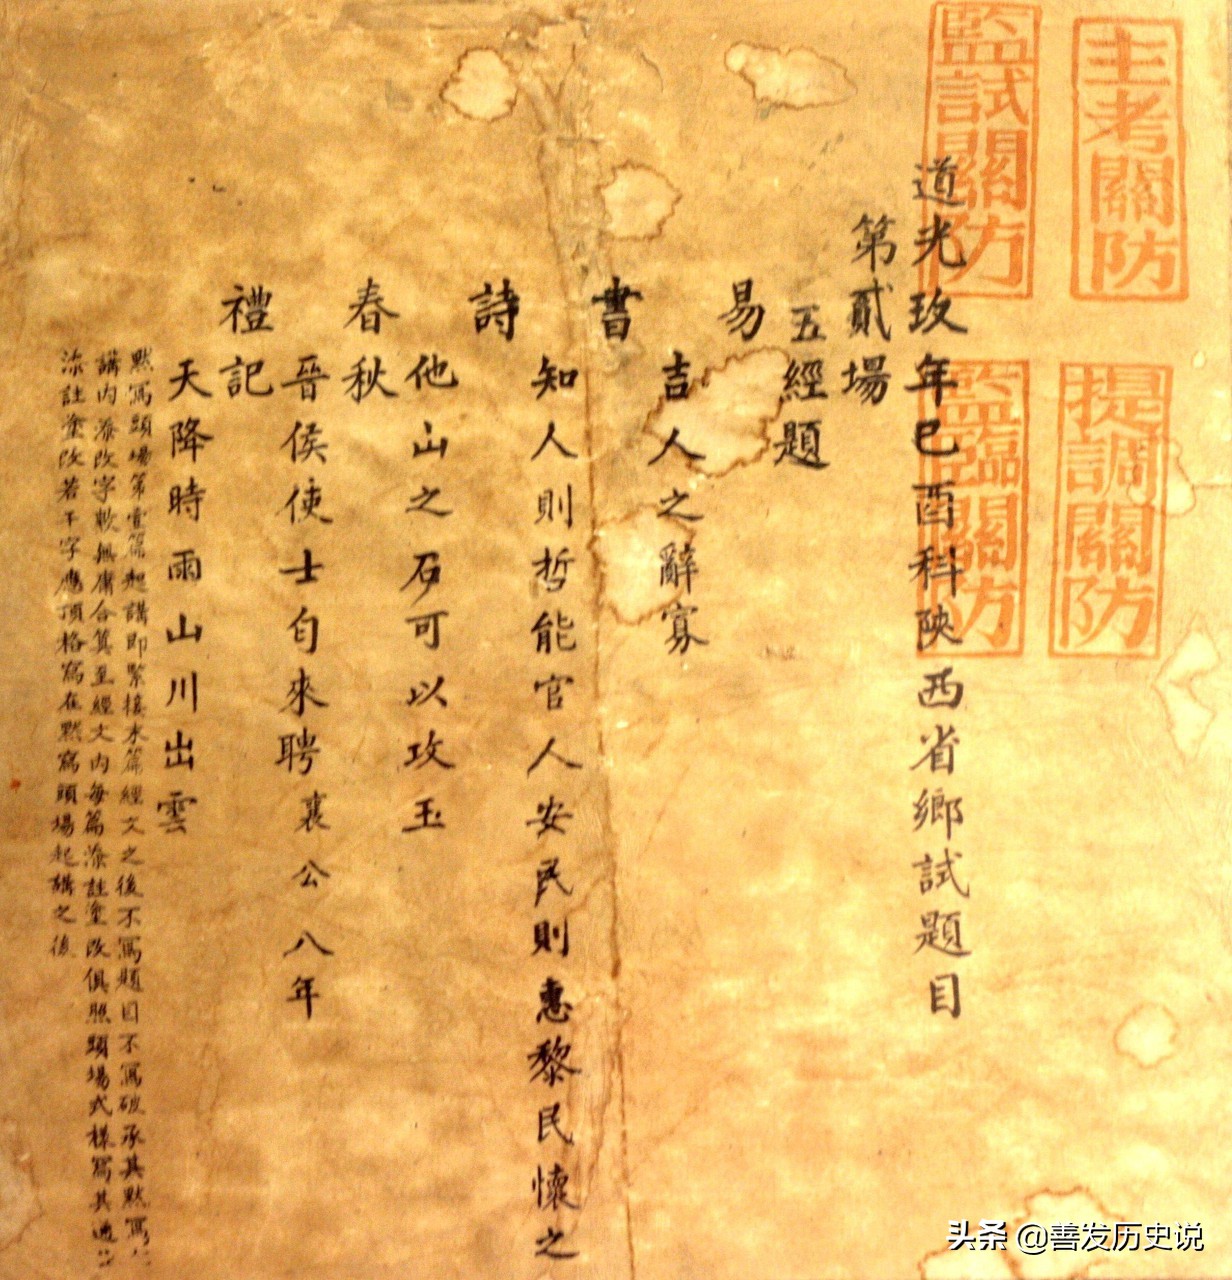 主考關防
監試關防
提調關防
監臨關防
道光玖年已酉科陝西省鄉試題目
第貳場
五經題
易
吉人之辭寡
書
知人則哲能官人安民則惠黎民懷之
詩
他山之石可以攻玉
春秋
晉侯使士匄來聘襄公八年
禮記
天降時雨山川出雲
默寫頭場第壹篇起講即緊接末篇經文之後不寫題目不寫破承其默寫
講內添改字數無庸合算至經文內每篇添註塗改俱照頭場式樣寫其通
添註塗改若干字應頂格寫在默寫頭場起講之後
头条 @善发历史说